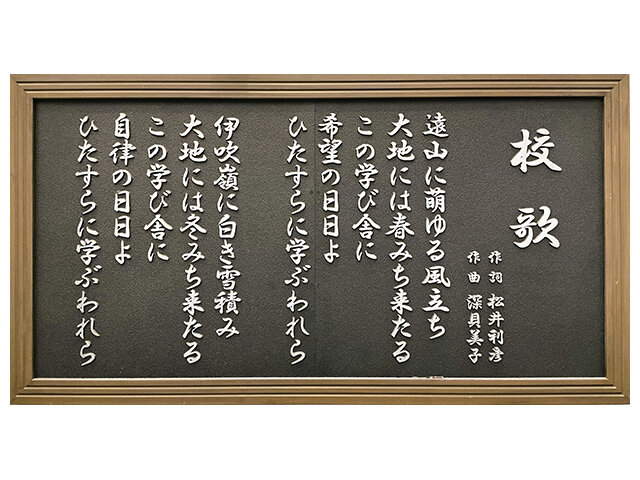 校歌
作詞 松井利彦
作曲 深貝美子
遠山に萌ゆる風立ち
大地には春みち来たる
この学び舎に
希望の日日よ
ひたすらに学ぶわれら
伊吹嶺に白き雪積み
大地には冬みち来たる
この学び舎に
自律の日日よ
ひたすらに学ぶわれら